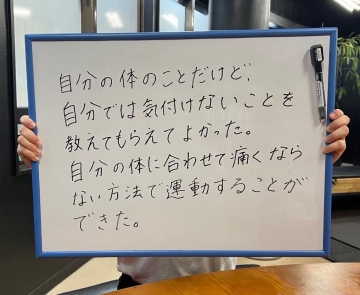 自分の体のことだけど、
自分では気付けないことを
教えてもらえてよかった。
自分の体に合わせて痛くなら
ない方法で運動することが
できた。